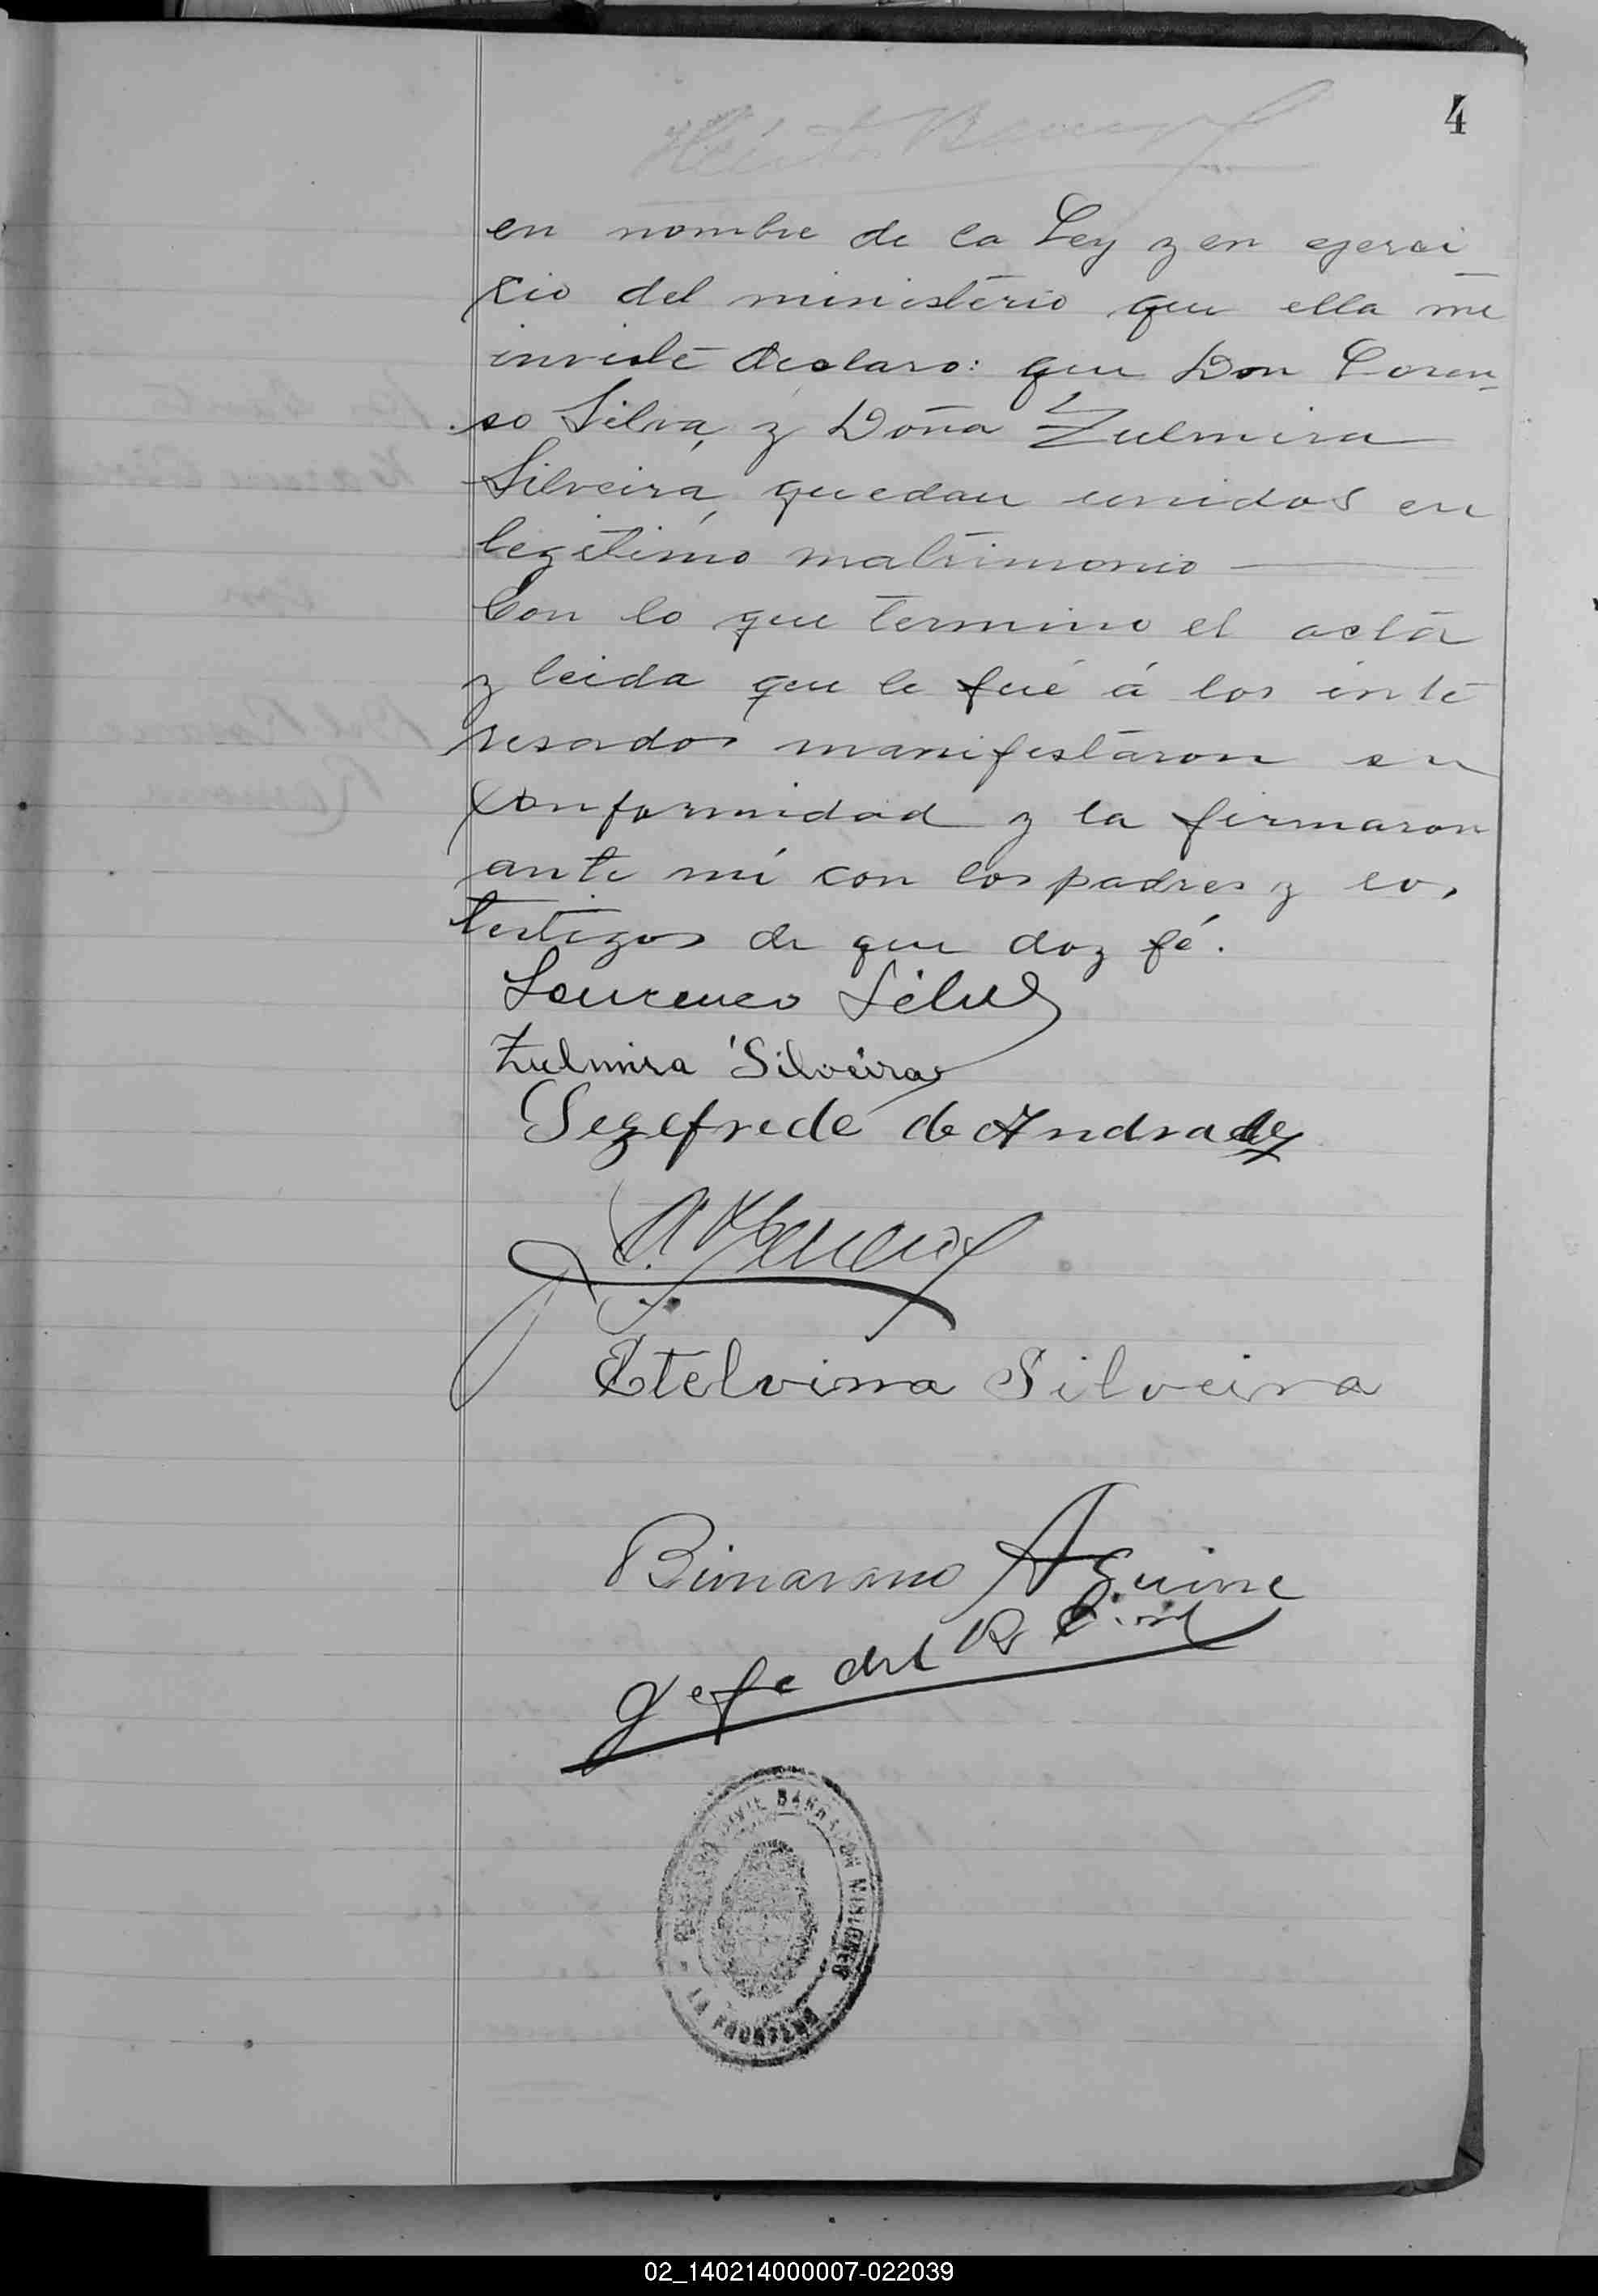 4
en nombre de la Ley y en ejerci
cio del ministerio que ella me
inviste declaro: que Don Loren-
so Silva, y Doña Zulmira
Silveira, quedan unidos en
legitimo matrimonio
Con lo que termino el acta
y leida que le fué á los inte
resados manifestaron su
conformidad y la firmaron
ante mi con los padres y los
testigos de que doy fé.
Lourenco Silva
Zulmira Silveira
Segefrede de Andrade
Etelvina Silveira
Aguirre
Gefe del R. Civil
CIVIL BARRACON MISIONES
LA FRONTERA
02_140214000007-022039